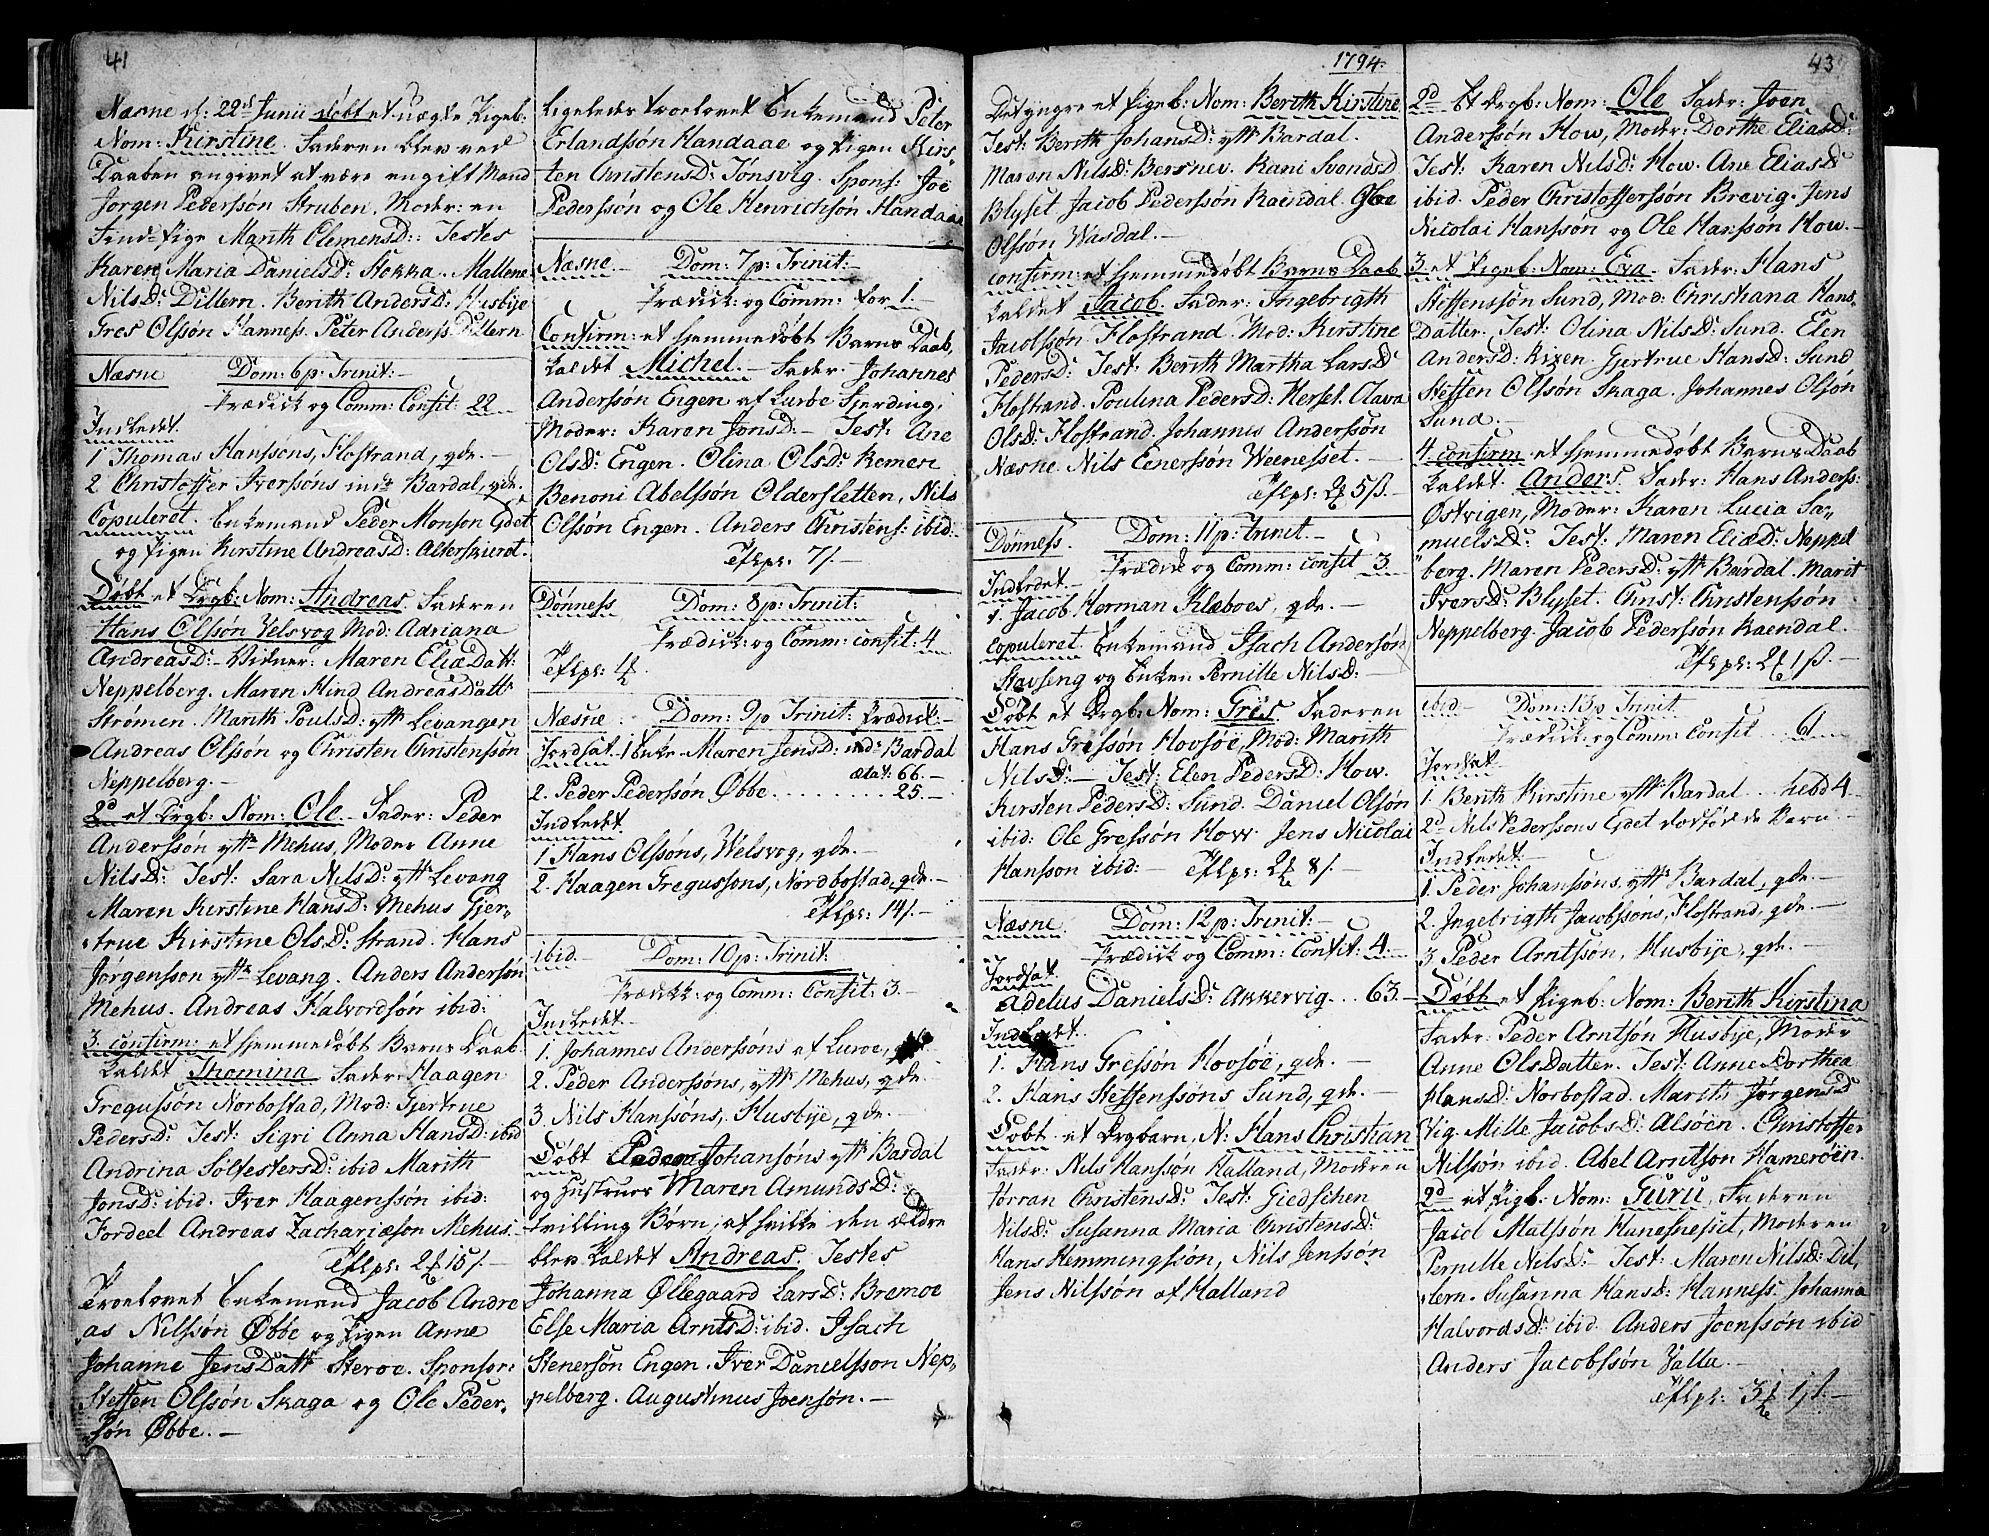 41
Næsne d: 22de Junii døbt et uægte Pigeb:
Nom: Kirstine. Faderen blev ved
Daaben angivet at være en gift Mand
Jørgen Pederssøn Struben. Moder: en
Find-Pige Marith ClemensD: Testes
Karen Maria DanielsD: Stokka. Mallene
NilsD: Dillern. Berith AndersD: Husbye
Gres Olssøn Hanness. Peter Anderss: Dillern
Næsne Dom: 6 p: Trinit:
Prædick og Comm: Confit: 22
Indledt.
1 Thomas Hanssøns, Flostrand, qde.
2 Christoffer Iverssøns indr Bardal, qde.
Copuleret. Enkemand Peder Monson Edet
og Pigen Kirstine AndreasD: Alterskiæret.
Døbt et Drgb: Nom: Andreas. Faderen
Hans Olssøn Velsvog Mod: Adriana
AndreasD: Vidner: Maren EliæDatt:
Neppelberg. Maren Hind AndreasDattr
Strømen. Marith PoulsD: yttr Levangen
Andreas Olssøn og Christen Christenssøn
Neppelberg.
2d et Drgb: Nom: Ole. Fader: Peder
Anderssøn yttr Mehus, Moder Anne
NilsD: Test: Sara NilsD: yttr Levang
Maren Kirstine HansD: Mehus Gjer-
true Kirstine OlsD: Strand. Hans
Jørgensson yttr Levang. Anders Anderssøn
Mehus. Andreas Halvordsøn ibid:
3. confirm: et hjemmedøbt Barns Daab
kaldet Thomina Fader: Haagen
Gregussøn Norbostad, Mod: Gjertrue
PedersD: Test: Sigri Anna HansD: ibid
Andrina SolfestersD: ibid Marith
JonsD: ibid. Iver Haagenssøn ibid:
Fordeel Andreas Zachariæson Mehus.
Tflps: 2 15/.
Troelovet Enkemand Jacob Andre
as Nilssøn Øbbe og Pigen Anne
Johanne JensDattr Steroe. Sponsor:
Steffen Olssøn Skaga og Ole Peder-
søn Øbbe.
Ligeledes troelovet Enkemand Peter
Erlandssøn Handaae og Pigen Kirs-
ten ChristensD: Tønsvig. Spons: Joe
Pederssøn og Ole Henrichsøn Handaae
Næsne Dom: 7 p: Trinit:
Prædick: og Comm: for 1.
Confirm: et hjemmedøbt Barns Daab,
kaldet Michel. Fader: Johannes
Anderssøn Engen af Lurøe Fjerding.
Moder: Karen JonsD: Test: Ane
OlsD: Engen. Olina OlsD: Remen
Benoni Abelssøn Oldersletten, Nils
Olssøn Engen. Anders Christens: ibid:
Tflps: 7/.
Dønness Dom: 8 p: Trinit:
Prædick: og Comm: confit: 4
Tflps: 4
Næsne Dom: 9 p Trinit: Prædick:
Jordsat. 1 Enke Maren JensD: indr Bardal
ætat: 66.
2. Peder Pederssøn Øbbe 25.
Indledt.
1 Hans Olssøns, Welsvog, qde.
2. Haagen Gregussons, Nordbostad, qde.
Tflps: 14/.
ibid. Dom: 10 p: Trinit:
Prædick: og Comm: Confit: 3.
Indledt.
1. Johannes Anderssøns af Luroe, qde.
2. Peder Anderssøns, yttr Mehus, qde.
3. Nils Hanssøns, Husbye, qde.
Døbt Peder Johansøns yttr Bardal
og Hustrues Maren AmundsD:
Tvilling Børn, af hvilke den ældre
blev kaldet Andreas. Testes
Johanna Øllegaard LarsD: Bremoe
Else Maria ArntsD: ibid. Isach
Stenersøn Engen. Iver Danielsson Nep-
pelberg. Augustinus Joensøn.
1794.
Det yngre et Pigeb: Nom: Berith Kirstine
Test: Berith JohansD: yttr Bardal.
Maren NilsD: Bersnev. Kani SvendsD
Blyset Jacob Pederssøn Raendal Gloe
Olssøn Wasdal.
confirm: et hjemmedøbt Barns Daab
kaldet Jacob. Fader: Ingebrigth
Jacobssøn Flostrand. Mod: Kirstine
PedersD: Test: Berith Martha LarsD
Flostrand. Poulina PedersD: Hersel. Olava
OlsD: Flostrand. Johannes Anderssøn
Næsne Nils Eenerssøn Weenesset.
Tflps: 2 5ß.
Dønness. Dom: 11 p: Trinit.
Prædick og Comm: confit 3.
Indledet
1. Jacob Herman Klæboes, qde.
copuleret Enkemand Isach Andersøn
Stavseng og Enken Pernille NilsD:
Døbt et Drgb: Nom: Gres. Faderen
Hans Gressøn Hovsøe, Mod: Marith
NilsD: Test: Elen PedersD: How.
Kirsten PedersD: Sund. Daniel Olssøn
ibid: Ole Gressøn How Jens Nicolai
Hansson ibid: Tflps: 2 8/.
Næsne Dom: 12 p: Trinit:
Prædick og Comm: Confit: 4.
Jordsat.
Adelus DanielsD: Akkervig 63.
Indledt.
1. Hans Gressøn Hovsøe, qde.
2. Hans Steffenssøns Sund, qde.
Døbt et Drgbarn, N: Hans Christian
Fader: Nils Hanssøn Halland, Moderen
Jorran ChristensD: Test: Giedschen
NilsD: Susanna Maria ChristensD:
Hans Hemmingssøn, Nils Jenssøn
Jens Nilssøn af Halland
43
2d Et Drgb: Nom: Ole Fader: Joen
Anderssøn How, Moder: Dorthe EliasD:
Test: Karen NilsD: How. Ane EliasD
ibid. Peder Christofferssøn Brevig. Jens
Nicolai Hanssøn og Ole Hanssøn How.
3 et Pigeb: Nom: Eva. Fader: Hans
Steffenssøn Sund, Mod: Christiana Hans
Datter. Test: Olina NilsD: Sund. Elen
AndersD: Kixen. Gjertrue HansD: Sund
Steffen Olssøn Skaga. Johannes Olssøn
Sund.
4. confirm et hjemmedøbt Barns Daab
kaldet Anders. Fader: Hans Anderss:
Østvigen, Moder: Karen Lucia Sa-
muelsD: Test: Maren EliæD: Neppel
berg. Maren PedersD: yttr Bardal. Marit
IversD: Blyset. Christ: Christenssøn
Neppelberg. Jacob Pederssøn Raendal.
Tflps: 2 1ß.
ibid Dom: 13 p Trinit
Prædick: og Comm: Confit 61
Jordsat
1. Berith Kirstine yttr Bardal hebd 4
2d Nils Pederssons Edet dødfødede Barn
Indledt.
1. Peder Johanssøns, yttr Bardal, qde.
2. Ingebrigth Jacobssøns, Flostrand, qde.
3 Peder Arntssøn, Husbye, qde.
Døbt et Pigeb: Nom: Berith Kirstina
Fader: Peder Arntsøn Husbye, Moder
Anne OlsDatter. Test: Anne Dorthea
HansD: Norbostad. Marith JørgensD
Vig. Mille JacobsD: Alsøen. Christoffer
Nilssøn ibid. Abel Arntsøn Hamerøen.
2d et Pigb: Nom: Guru. Faderen
Jacob Matssøn Hanesnesset, Moderen
Pernille NilsD: Test: Maren NilsD: Dil,
lern. Susanna HansD: Hanness. Johanna
HalvordsD: ibid. Anders Joenssøn ibid
Anders Jacobssøn Zalla.
Tflps: 3 1/.